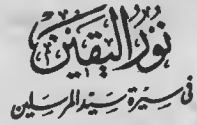 نُورُ الْيَقِينِ
فِي سِيرَةِ سَيِّدِ الْمُرْسَلِينَ